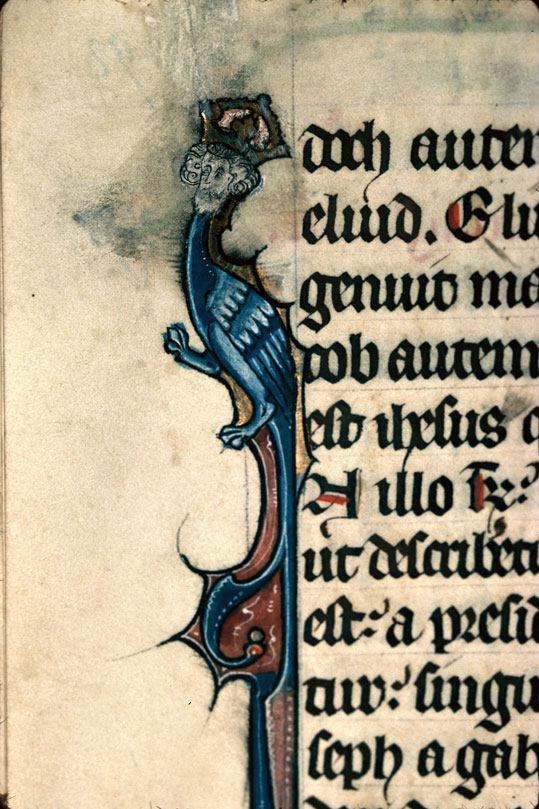 doch autem
eliud. Eliu
genuit ma
cob autem
est ihesus q
A illo
ut describet
est: a presid
tur: singu
seph a gali